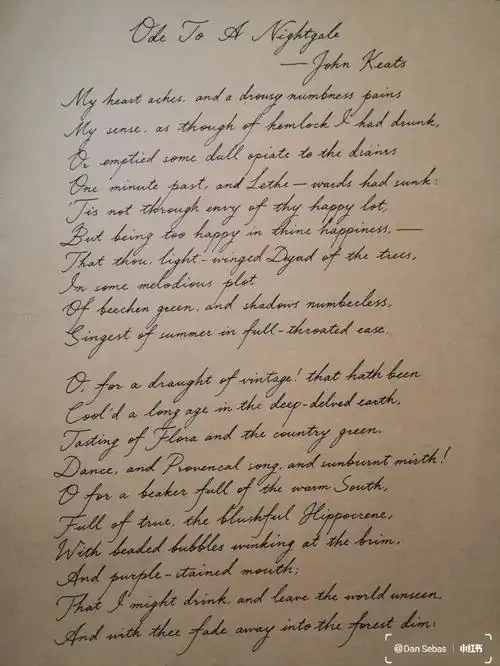 Ode To A Nightgale
—John Keats
My heart aches, and a drowsy numbness pains
My sense, as though of hemlock I had drunk,
Or emptied some dull opiate to the drains
One minute past, and Lethe—wards had sunk:
'Tis not through envy of thy happy lot,
But being too happy in thine happiness,—
That thou, light-winged Dyad of the trees,
In some melodious plot
Of beechen green, and shadows numberless,
Singest of summer in full-throated ease.
O, for a draught of vintage! that hath been
Cool'd a long age in the deep-delved earth,
Tasting of Flora and the country green,
Dance, and Provencal song, and sunburnt mirth!
O for a beaker full of the warm South,
Full of true, the blushful Hippocrene,
With beaded bubbles winking at the brim,
And purple-stained mouth;
That I might drink, and leave the world unseen,
And with thee fade away into the forest dim:
@Dan Sebas | 小红书